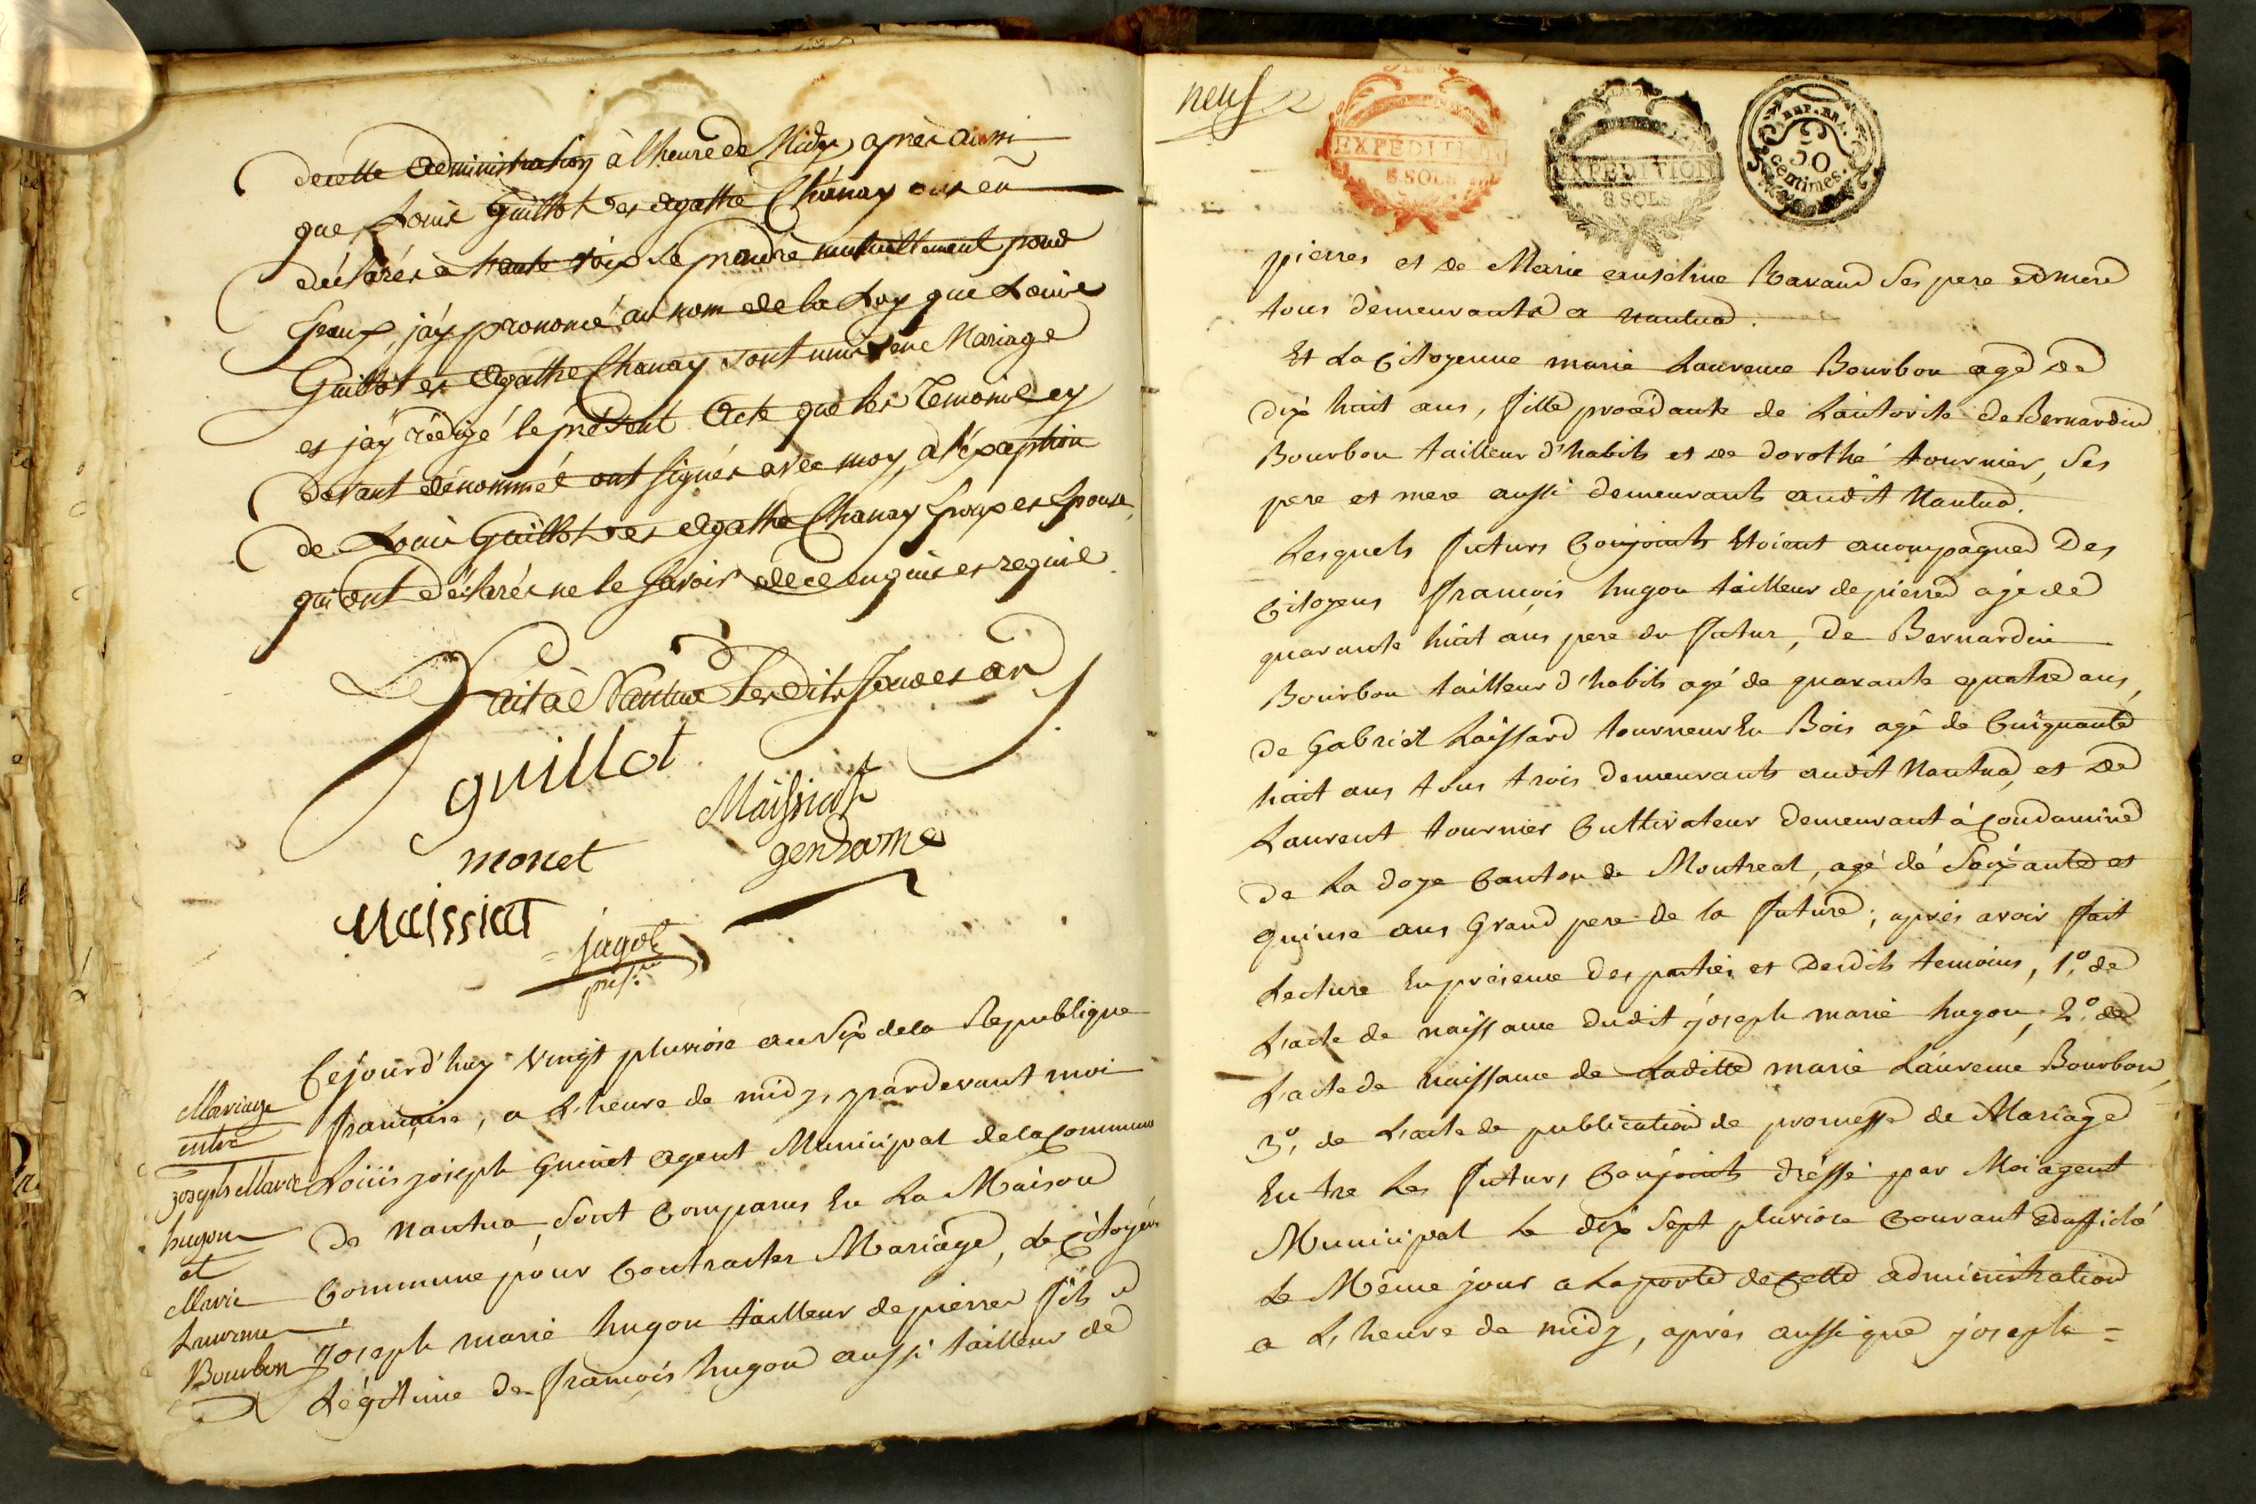 decette administration à l'heure de Midy, après aussi
que Louis Guillot et Agathe Chanay ont eu
déclarés à haute voix se prendre mutuellement pour
Epoux, j'ay prononcé au nom de la Loy que Louis
Guillot et Agathe Chanay sont unis en Mariage
et j'ay rédigé le présent Acte que les Temoins cy
devant dénommés ont signés avec moy, a l'éxception
de Louis Guillot et Agathe Chanay Epoux et Epouse,
qui ont déclarés ne le savoir de ce enquis et requis
Fait à Nantua les dits Jour et an
guillot
Maissiat
gendarme
monet
Maissiat
jagot
presid.
Mariage
entre
joseph Marie
hugon
et
Marie
Laurence
Bourbon
Cejourd'huy vingt pluviose an Six dela Republique
française, a L'heure de midy, pardevant moi
Loüis joseph Guinet agent Municipal dela Commune
de nantua, Sont Comparus En La Maison
Commune pour Contracter Mariage, Le Citoyen
joseph marie hugon tailleur de pierres fils
Légitime de françois hugon aussi tailleur de
neuf
EXPEDITION
8 SOLS
EXPEDITION
8 SOLS
REP. FRA.
50
centimes.
pierres et de Marie anselme Ravaud Ses pere et mere
tous demeurants a nantua.
Et La Citoyenne marie Laurence Bourbon agé de
dix huit ans, fille procedante de Lautorité de Bernardin
Bourbon tailleur d'habits et de dorothé tournier, Ses
pere et mere aussi demeurants audit Nantua.
Lesquels futurs Conjoints Etoient acompagnes Des
Citoyens françois hugon tailleur de pierres agé de
quarante huit ans pere du futur, de Bernardin
Bourbon tailleur d'habits agé de quarante quatre ans,
de Gabriel Laissard tourneur En Bois agé de Cinquante
huit ans tous trois demeurants audit Nantua, et de
Laurent tournier Cultivateur demeurant à Condamine
de La doye Canton de Montreal, agé dé Soixante et
quinse ans Grand pere de la future; après avoir fait
Lecture En présence des parties et Desdits temoins, 1.° de
L'acte de naissance dudit joseph marie hugon, 2.° de
L'acte de naissance de Laditte marie Laurence Bourbon,
3.° de L'acte de publication de promesse de Mariage
Entre Les futurs Conjoints dréssé par Moi agent
Municipal Le dix Sept pluviose Courant Et affiché
Le Même jour a La porte de Cette administration
a L'heure de midy, après aussi que joseph =